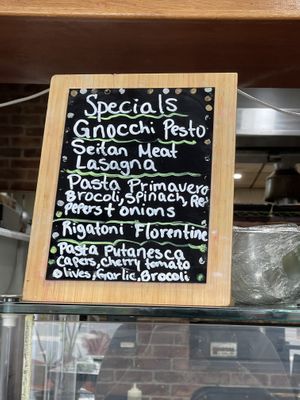 Specials
Gnocchi Pesto
Seitan Meat
Lasagna
Pasta Primavero
Brocoli, spinach, Re
pepers + onions
Rigatoni Florentine
Pasta Putanesca
capers, cherry tomato
olives, Garlic, Brocoli